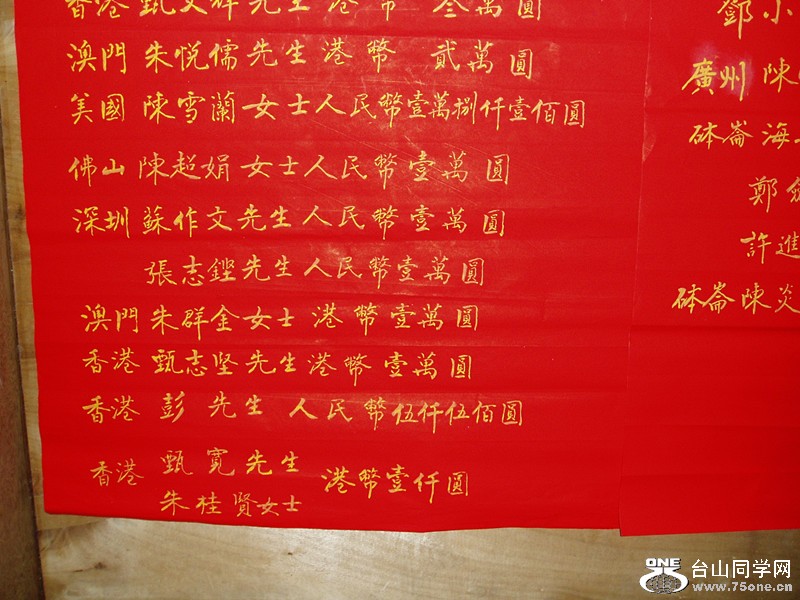 香港 甄文群先生 港幣 叁萬圓
澳門 朱悦儒先生港幣 貳萬圓
美國 陳雪蘭女士人民幣壹萬捌仟壹佰圓
佛山 陳超娟女士人民幣壹萬圓
深圳 蘇作文先生人民幣壹萬圓
張志鏗先生人民幣壹萬圓
澳門 朱群金女士 港幣壹萬圓
香港 甄志坚先生港幣壹萬圓
香港 彭 先生 人民幣伍仟伍佰圓
香港 甄寬先生 港幣壹仟圓
朱桂賢女士
鄧小
廣州 陳
砵崙 海
鄭
許進
砵崙 陳炎
ONE 台山同学网
www.75one.cn